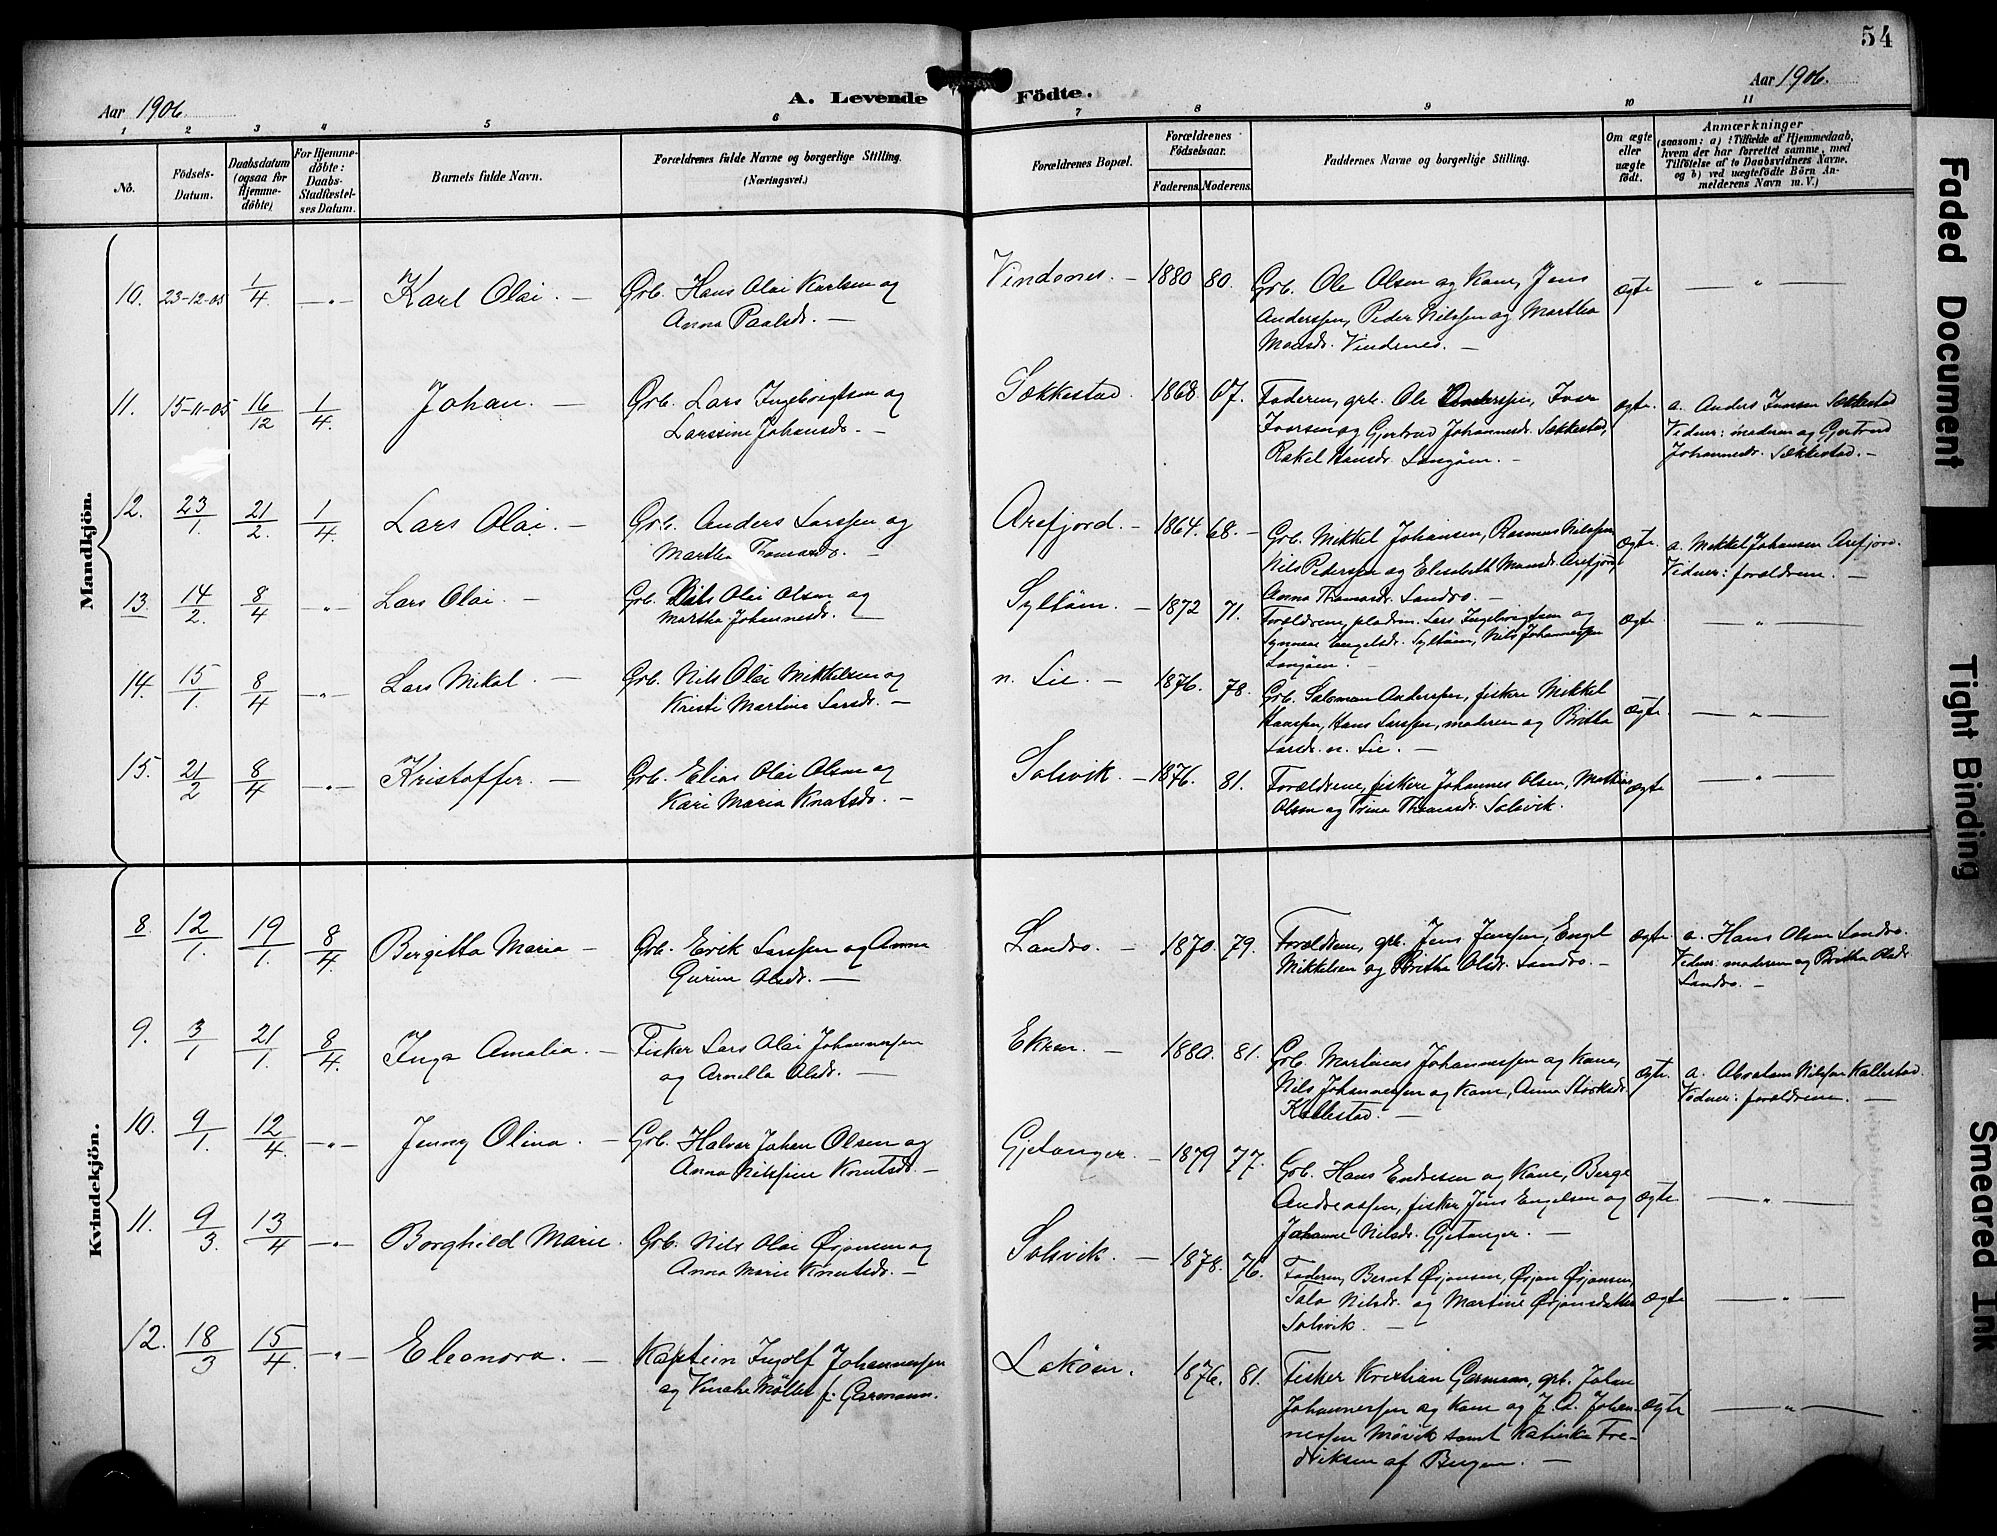 54
Aar 1906.
A. Levende Födte.
Aar 1906.
1 2 3 4 5 6 7 8 9 10 11
No.
Födsels-
Datum.
Daabsdatum
(ogsaa for
Hjemme-
döbte)
For Hjemme-
döbte:
Daabs-
Stadfæstel-
ses Datum.
Barnets fulde Navn.
Forældrenes fulde Navne og borgerlige Stilling.
(Næringsvei.)
Forældrenes Bopæl.
Forældrenes
Födselsaar.
Faderens. Moderens.
Faddernes Navne og borgerlige Stilling.
Om ægte
eller
uægte
födt.
Anmærkninger
(saasom: a) i Tilfælde af Hjemmedaab,
hvem der har forrettet samme, med
Tilföielse af to Daabsvidners Navne.
og b) ved uægtefödte Börn An-
melderens Navn m. V.)
Mandkjön.
10. 23-12-05 1/4 -"- Karl Olai. — Grb. Hans Olai Karlsen og
Anna Paalsdr. —
Vindenes. — 1880 80. Grb. Ole Olsen og Kone, Jens
Anderssen, Peder Nilssen og Martha
Monsdr. Vindenes. —
ægte — " —
11. 15-11-05 16/12 1/4 Johan. — Grb. Lars Ingebrigtsen og
Larssine Johansdr. —
Sækkestad. 1868 67. Faderen, grb. Ole Anderssen, Ivar
Iversen og Gjertrud Johannesdr. Sækkestad,
Rakel Hansdr. Langöen. —
ægte. a. Anders Iversen Sækkestad
Vidner: moderen og Gjertrud
Johannesdr. Sækkestad. —
12. 23/1. 21/2. 1/4. Lars Olai. — Grb. Anders Larssen og
Martha Thomasdr. —
Arefjord. — 1864. 68. — Grb. Mikkel Johansen, Rasmus Nilssen,
Nils Pederssen og Elisabeth Monsdr. Arefjord,
Anna Thomasdr. Landro. —
ægte. a. Mikkel Johansen Arefjord.
Vidner: forældrene. —
13. 14/2. 8/4 -"- Lars Olai. — Grb. Nils Olai Olsen og
Martha Johannesdr. —
Syltöen. — 1872 71. Forældrene, pladsm. Lars Ingebrigtsen og
Synneve Engelsdr. Syltöen, Nils Johannessen
Langöen. —
ægte. — " —
14. 15/1. 8/4 -"- Lars Mikal. — Grb. Nils Olai Mikkelsen og
Kristi Martine Larsdr. —
n. Lie. — 1876. 78. Grb. Salomon Anderssen, fisker Mikkel
Hanssen, Hans Larssen, moderen og Britha
Larsdr. n. Lie. —
ægte. — " —
15. 21/2 8/4 -"- Kristoffer. — Grb. Elias Olai Olsen og
Kari Maria Knutsdr. —
Solsvik. — 1876. 81. Forældrene, fiskere Johannes Olsen, Mathias
Olsen og Trina Thomasdr. Solsvik.
ægte — " —
Kvindekjön.
8 12/1. 19/1. 8/4. Bergitta Maria — Grb. Erik Larssen og Anna
Gurine Olsdr. —
Landro. — 1870. 79. Forældrene, grb. Jens Jenssen, Engel
Mikkelsen og Britha Olsdr. Landro. —
ægte. a. Hans Olsen Landro.
Vidner: moderen og Britha Olsdr.
Landro. —
9. 3/1 21/1. 8/4. Inga Amalia. — Fisker Lars Olai Johannessen
og Arnilla Olsdr. —
Ekren. — 1880. 81. Grb. Martinus Johannessen og Kone,
Nils Johannessen og Kone, Anna Styrksdr.
Kallestad. —
ægte. a. Abraham Nilssen Kallestad.
Vidner: forældrene. —
10. 9/1. 12/4. -"- Jenny Olina. — Grb. Halvor Johan Olsen og
Anna Nilssine Knutsdr. —
Gjetanger. — 1879 77. Grb. Hans Endresen og Kone, Berge
Andreassen, fisker Jens Engelsen og
Johanne Nilsdr. Gjetanger. —
ægte. — " —
11. 9/3. 13/4 -"- Borghild Marie. Grb. Nils Olai Örjansen og
Anna Marie Knutsdr. —
Solsvik. — 1878. 76. Faderen, Bernt Örjansen, Örjan Örjansen,
Talo Nilsdr. og Martine Örjansdatter
Solsvik. —
ægte — " —
12. 18/3 15/4. -"- Eleonora. — Kaptein Ingolf Johannessen
og Vinche Möller f. Garmann.
Loköen. 1876. 81. Fisker Kristian Garmann, grb. Johan
Johannessen og Kone og J. A. Johan-
nessen Mövik samt Katinka Fre-
driksen af Bergen. —
ægte — " —
Faded Document
Tight Binding
Smeared Ink